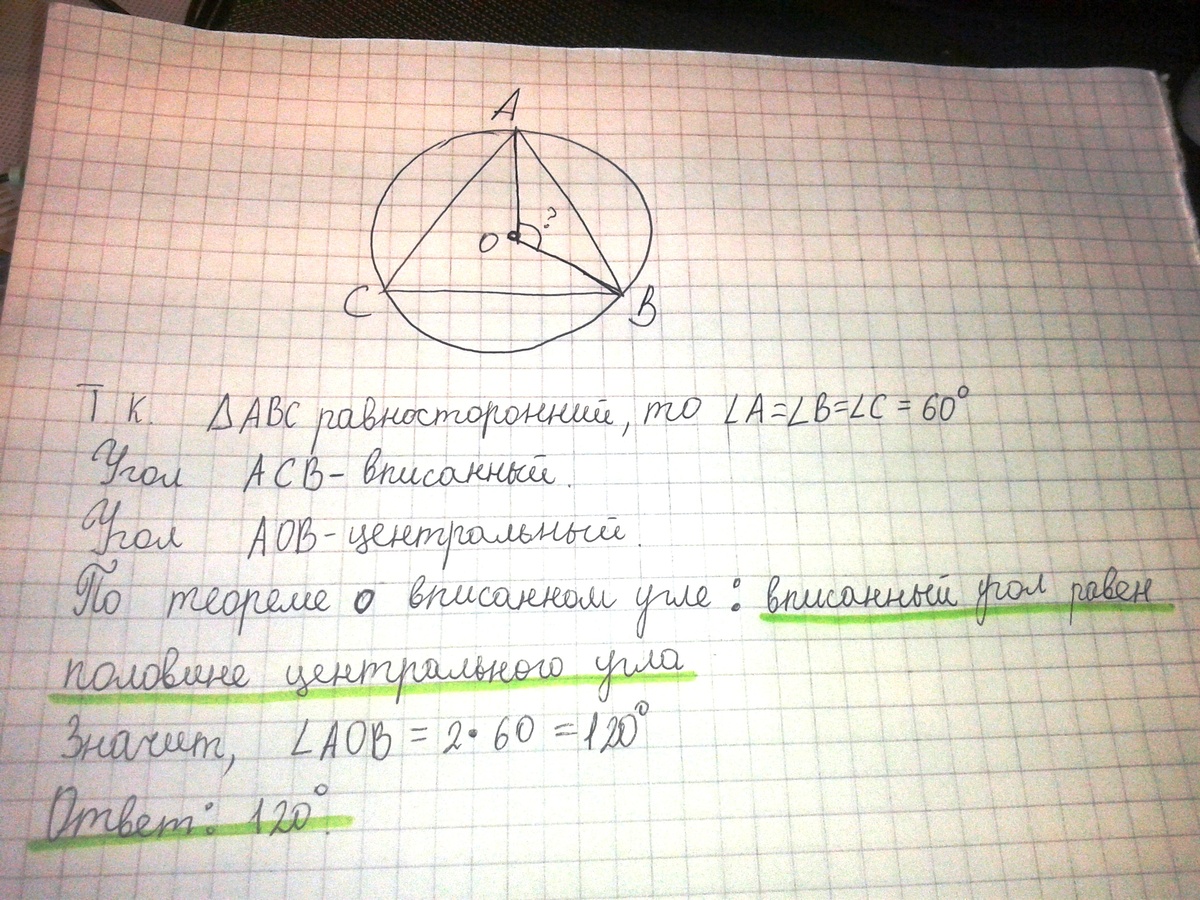 A
O ?
C B
Т.к. ΔABC равносторонний, то ∠A=∠B=∠C=60°
Угол ACB - вписанный.
Угол AOB - центральный.
По теореме о вписанном угле: вписанный угол равен
половине центрального угла
Значит, ∠AOB = 2·60 =120°
Ответ: 120°.